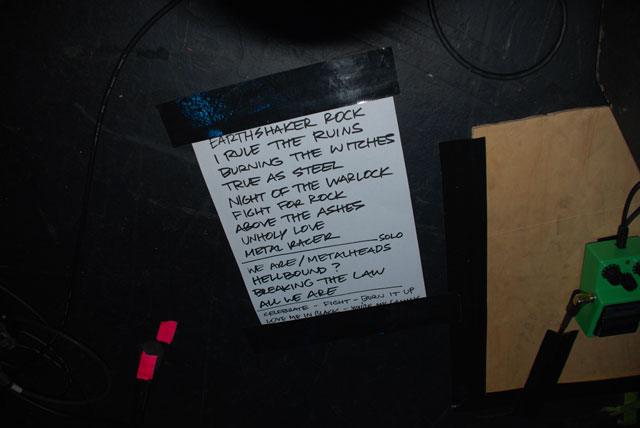 EARTHSHAKER ROCK
I RULE THE RUINS
BURNING THE WITCHES
TRUE AS STEEL
NIGHT OF THE WARLOCK
FIGHT FOR ROCK
ABOVE THE ASHES
UNHOLY LOVE
METAL RACER SOLO
WE ARE / METALHEADS
HELLBOUND?
BREAKING THE LAW
ALL WE ARE
CELEBRATE - FIGHT - BURN IT UP
LOVE ME IN BLACK -